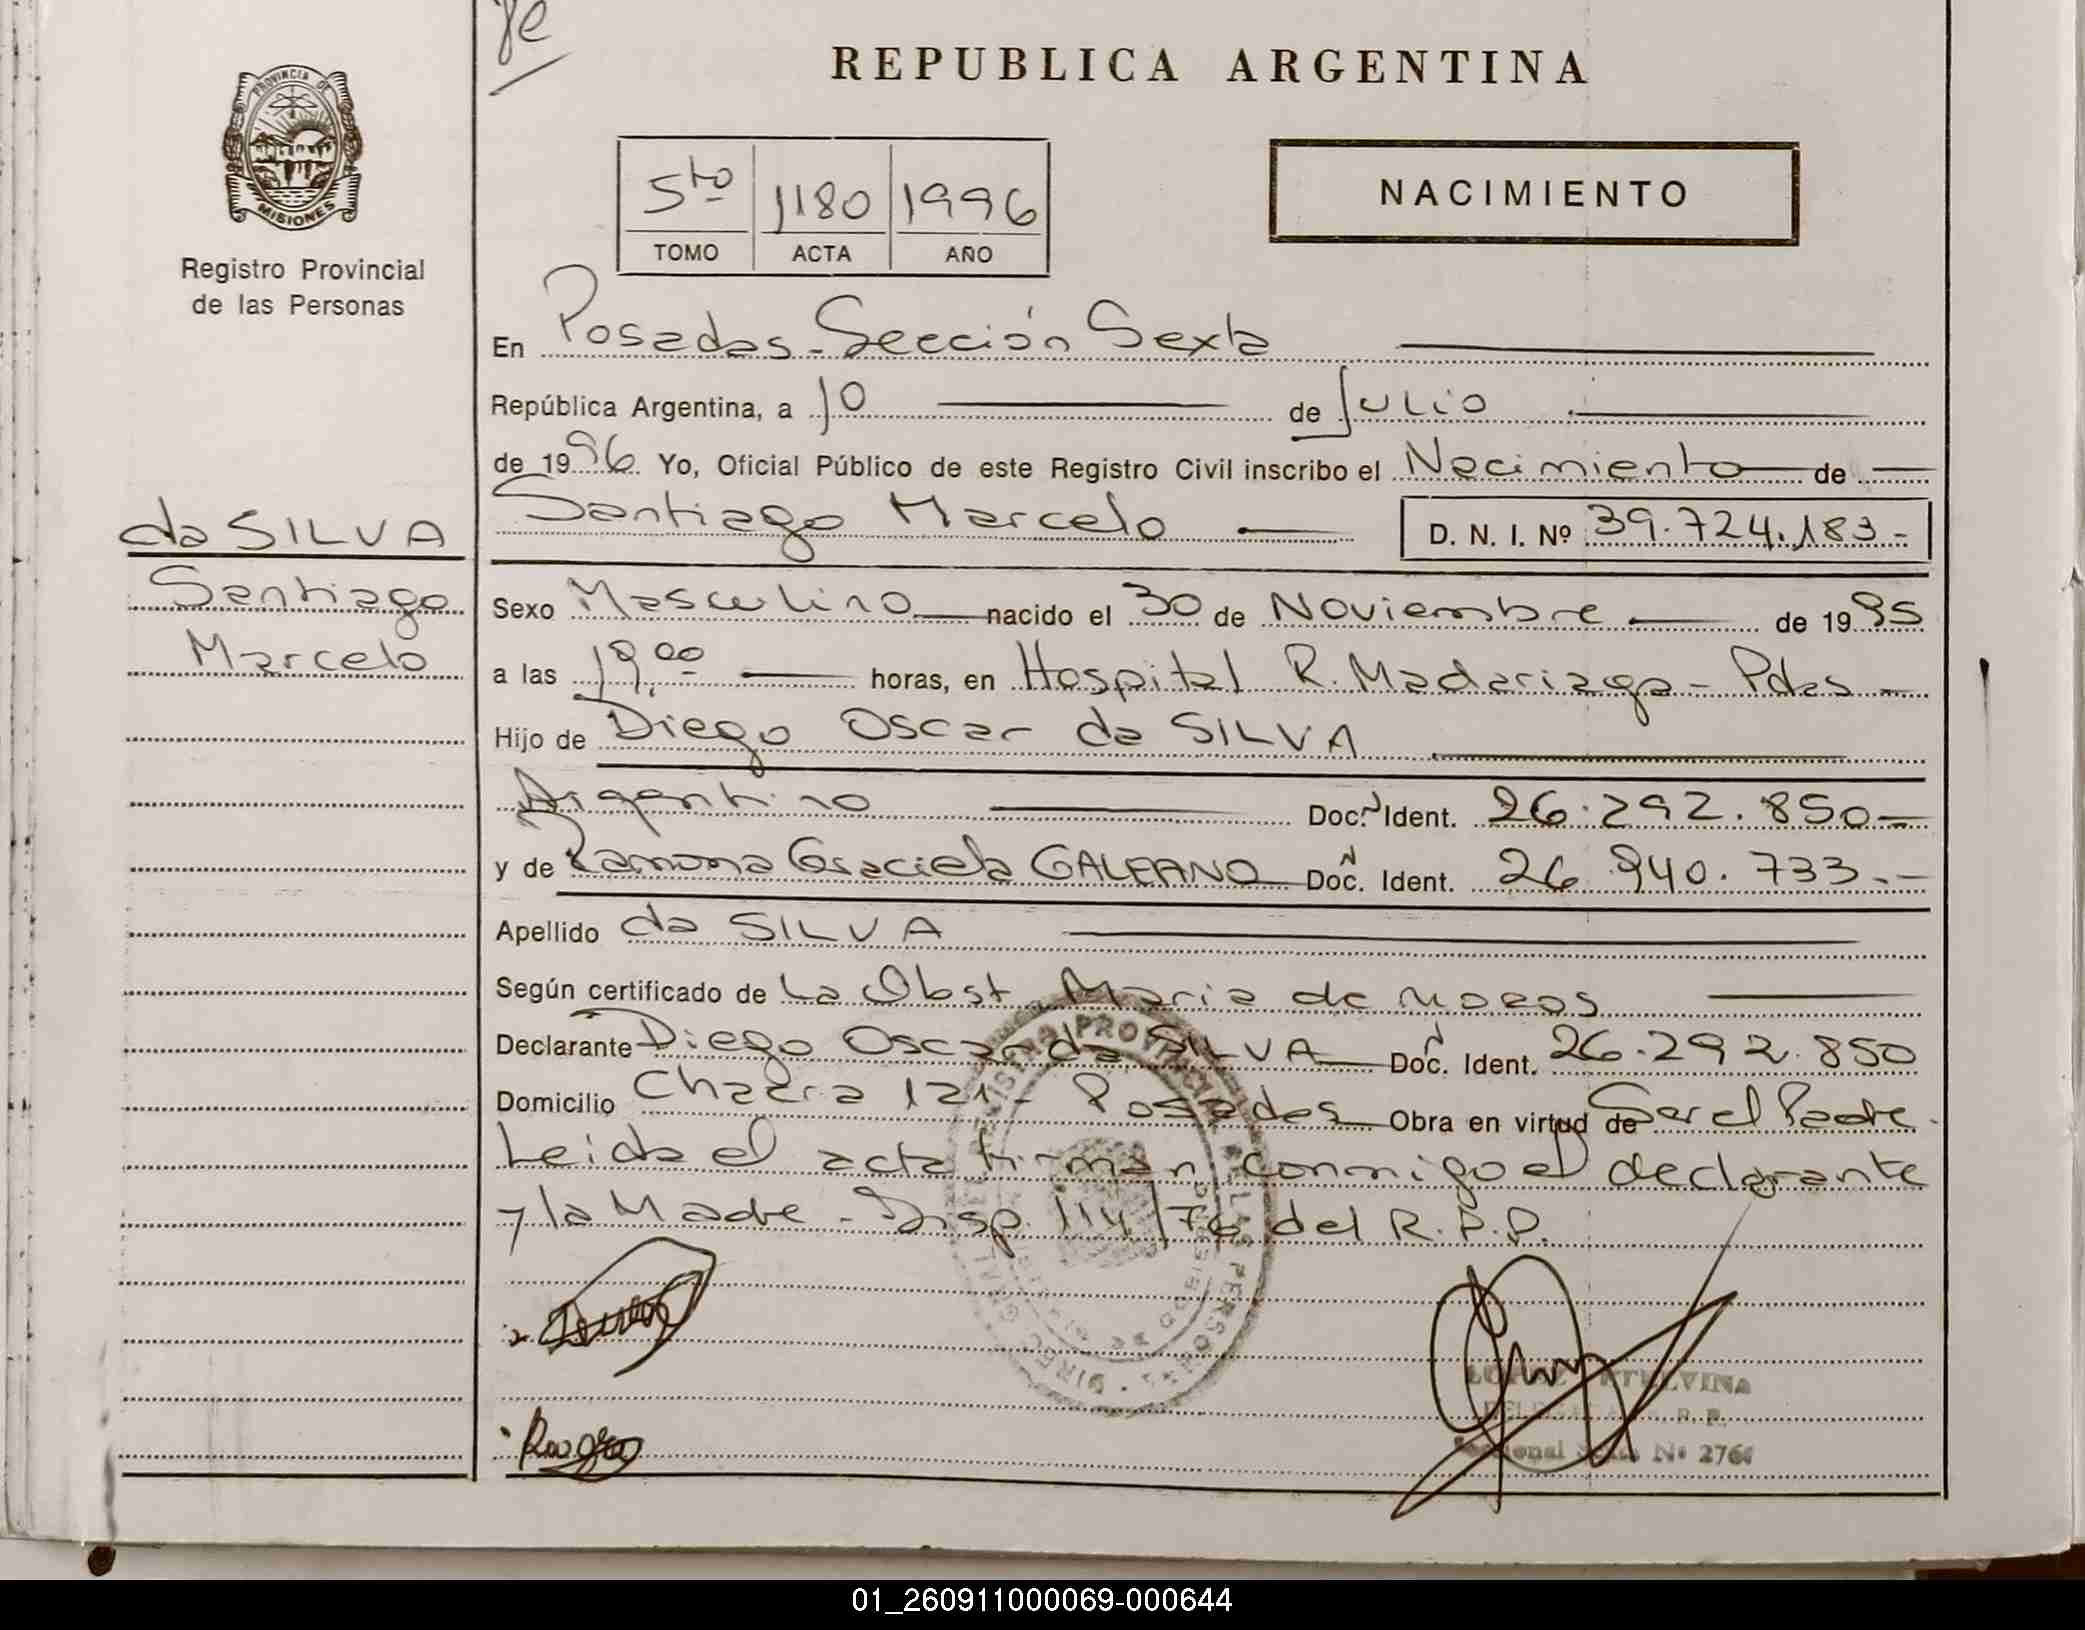 REPUBLICA ARGENTINA
PROVINCIA DE
MISIONES
Registro Provincial
de las Personas
5to 1180 1996
TOMO ACTA AÑO
NACIMIENTO
En Posadas - Sección Sexta
República Argentina, a 10 de Julio
de 1996. Yo, Oficial Público de este Registro Civil inscribo el Nacimiento de
Santiago Marcelo D. N. I. Nº 39.724.183-
da SILVA
Santiago
Marcelo
Sexo Masculino nacido el 30 de Noviembre de 1995
a las 19,00 horas, en Hospital R. Madariaga - Pdas -
Hijo de Diego Oscar da SILVA
Argentino Doc. Ident. 26.292.850-
y de Ramona Graciela GALEANO Doc. Ident. 26.940.733.-
Apellido da SILVA
Según certificado de La Obst. Maria de
Declarante Diego Oscar da SILVA Doc. Ident. 26.292.850
Domicilio Chacra 121 - Posadas Obra en virtud de Ser el Padre.
Leida el acta firman conmigo el declarante
y la Madre - Disp. 114/76 del R.P.P.
LOPEZ ETELVINA
Nº 2764
01_260911000069-000644